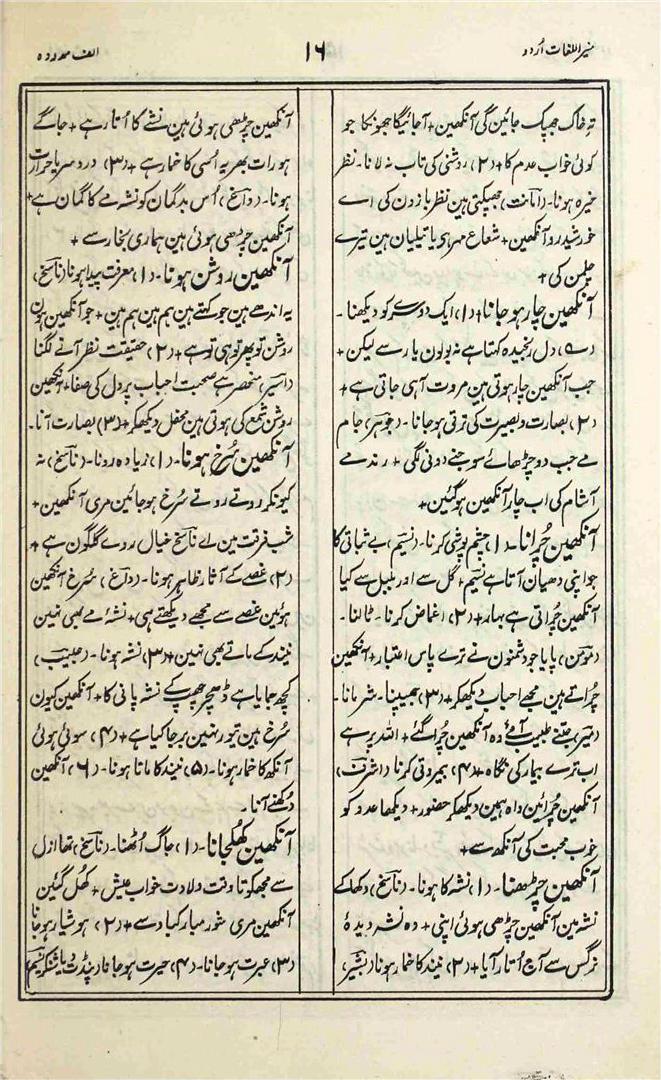 منیر اللغات اُردو
۱۶
الف ممدودہ
تہِ خاک جھپک جائین گی آنکھین + آجائیگا جھونکا جو
کوئی خواب عدم کا + (۲) روشنی کی تاب نہ لانا۔ نظر
خیرہ ہونا۔ (امانت) جھپکتی ہین نظر بازون کی اے
خورشید رو آنکھین + شعاع مہر ہی یا تیلیان ہین تیرے
چلمن کی +
آنکھین چار ہو جانا + (۱) ایک دوسرے کو دیکھنا۔
دل رنجیدہ کہتا ہے نہ بولون یار سے لیکن +
جب آنکھین چار ہوتی ہین مروت آہی جاتی ہے +
(۲) بصارت و بصیرت کی ترقی ہو جانا۔ (جوہر) جام
مے جب دو چڑھائے سوجھنے دونی لگی + رند مے
آشام کی اب چار آنکھین ہوگئین +
آنکھین چُرانا۔ (۱) چشم پوشی کرنا۔ (نسیم) بے ثباتی کا
جو اپنی دھیان آتا ہے نسیم + گل سے اور بلبل سے کیا
آنکھین چُراتی ہے بہار + (۲) اغماض کرنا۔ ٹالنا۔
(مومن) پایا جو دشمنون نے ترے پاس اعتبار + آنکھین
چراتے ہین مجھے احباب دیکھکر + (۳) جھیپنا۔ شرمانا۔
(میر) جتنے طبیب آئے وہ آنکھین چُرا گئے + اللہ پر ہے
اب ترے بیمار کی نگاہ + (۴) بیمروتی کرنا (اشرف)
آنکھین چُرائین واہ ہمین دیکھکر حضور + دیکھا عدو کو
خوب محبت کی آنکھ سے +
آنکھین چڑھنا۔ (۱) نشہ کا ہونا۔ (ناسخ) دکھلا کے
نشہ مین آنکھین چڑھی ہوئی اپنی + وہ نشہ دیدۂ
نرگس سے آج اُتار آیا + (۲) نیند کا خمار ہونا (بشیر)
آنکھین چڑھی ہوئی ہین نشے کا اُتار ہے + جاگے
ہو رات بھر یہ اُسی کا خمار ہے + (۳) درد سر یا حرارت
ہونا۔ (داسخ) اُس بدگمان کو نشہ مے کا گمان ہے +
آنکھین چڑھی ہوئی ہین ہماری بخار سے +
آنکھین روشن ہونا۔ (۱) معرفت پیدا ہونا (ناسخ)
یہ اندھے ہین جو کہتے ہین ہم ہین ہم ہین + جو آنکھین ہون
روشن تو پھر تو ہی تو ہے + (۲) حقیقت نظر آنے لگنا
(اسیر) منحصر ہے صحبت احباب پر دل کی صفا + آنکھین
روشن شمع کی ہوتی ہین محفل دیکھکر + (۳) بصارت آنا۔
آنکھین سُرخ ہونا۔ (۱) زیادہ رونا۔ (ناسخ) نہ
کیونکر روتے روتے سُرخ ہو جائین مری آنکھین +
شب فرقت مین اے ناسخ خیال روے گلگون ہے +
(۲) غصے کے آثار ظاہر ہونا۔ (داغ) سُرخ آنکھین
ہوئین غصے سے مجھے دیکھتے ہی + نشۂ مے بھی نہین
نیند کے ماتے بھی نہین + (۳) نشہ ہونا۔ (حبیب)
کچھ جمایا ہے چھپ کے نشہ پانی کا + آنکھین کیون
سُرخ ہین تیور نہین برجا کیا ہے + (۴) سوئی ہوئی
آنکھ کا خمار ہونا۔ (۵) نیند کا ماتا ہونا۔ (۶) آنکھین
دُکھنے آنا۔
آنکھین کھُلجانا۔ (۱) جاگ اُٹھنا۔ (ناسخ) تھا ازل
سے مجھکو تا وقت ولادت خواب عیش + کھُل گئین
آنکھین مری شور مبارکباد سے + (۲) ہوشیار ہو جانا
(۳) عبرت ہو جانا۔ (۴) حیرت ہو جانا (پنڈت دیا شنکر نسیم)